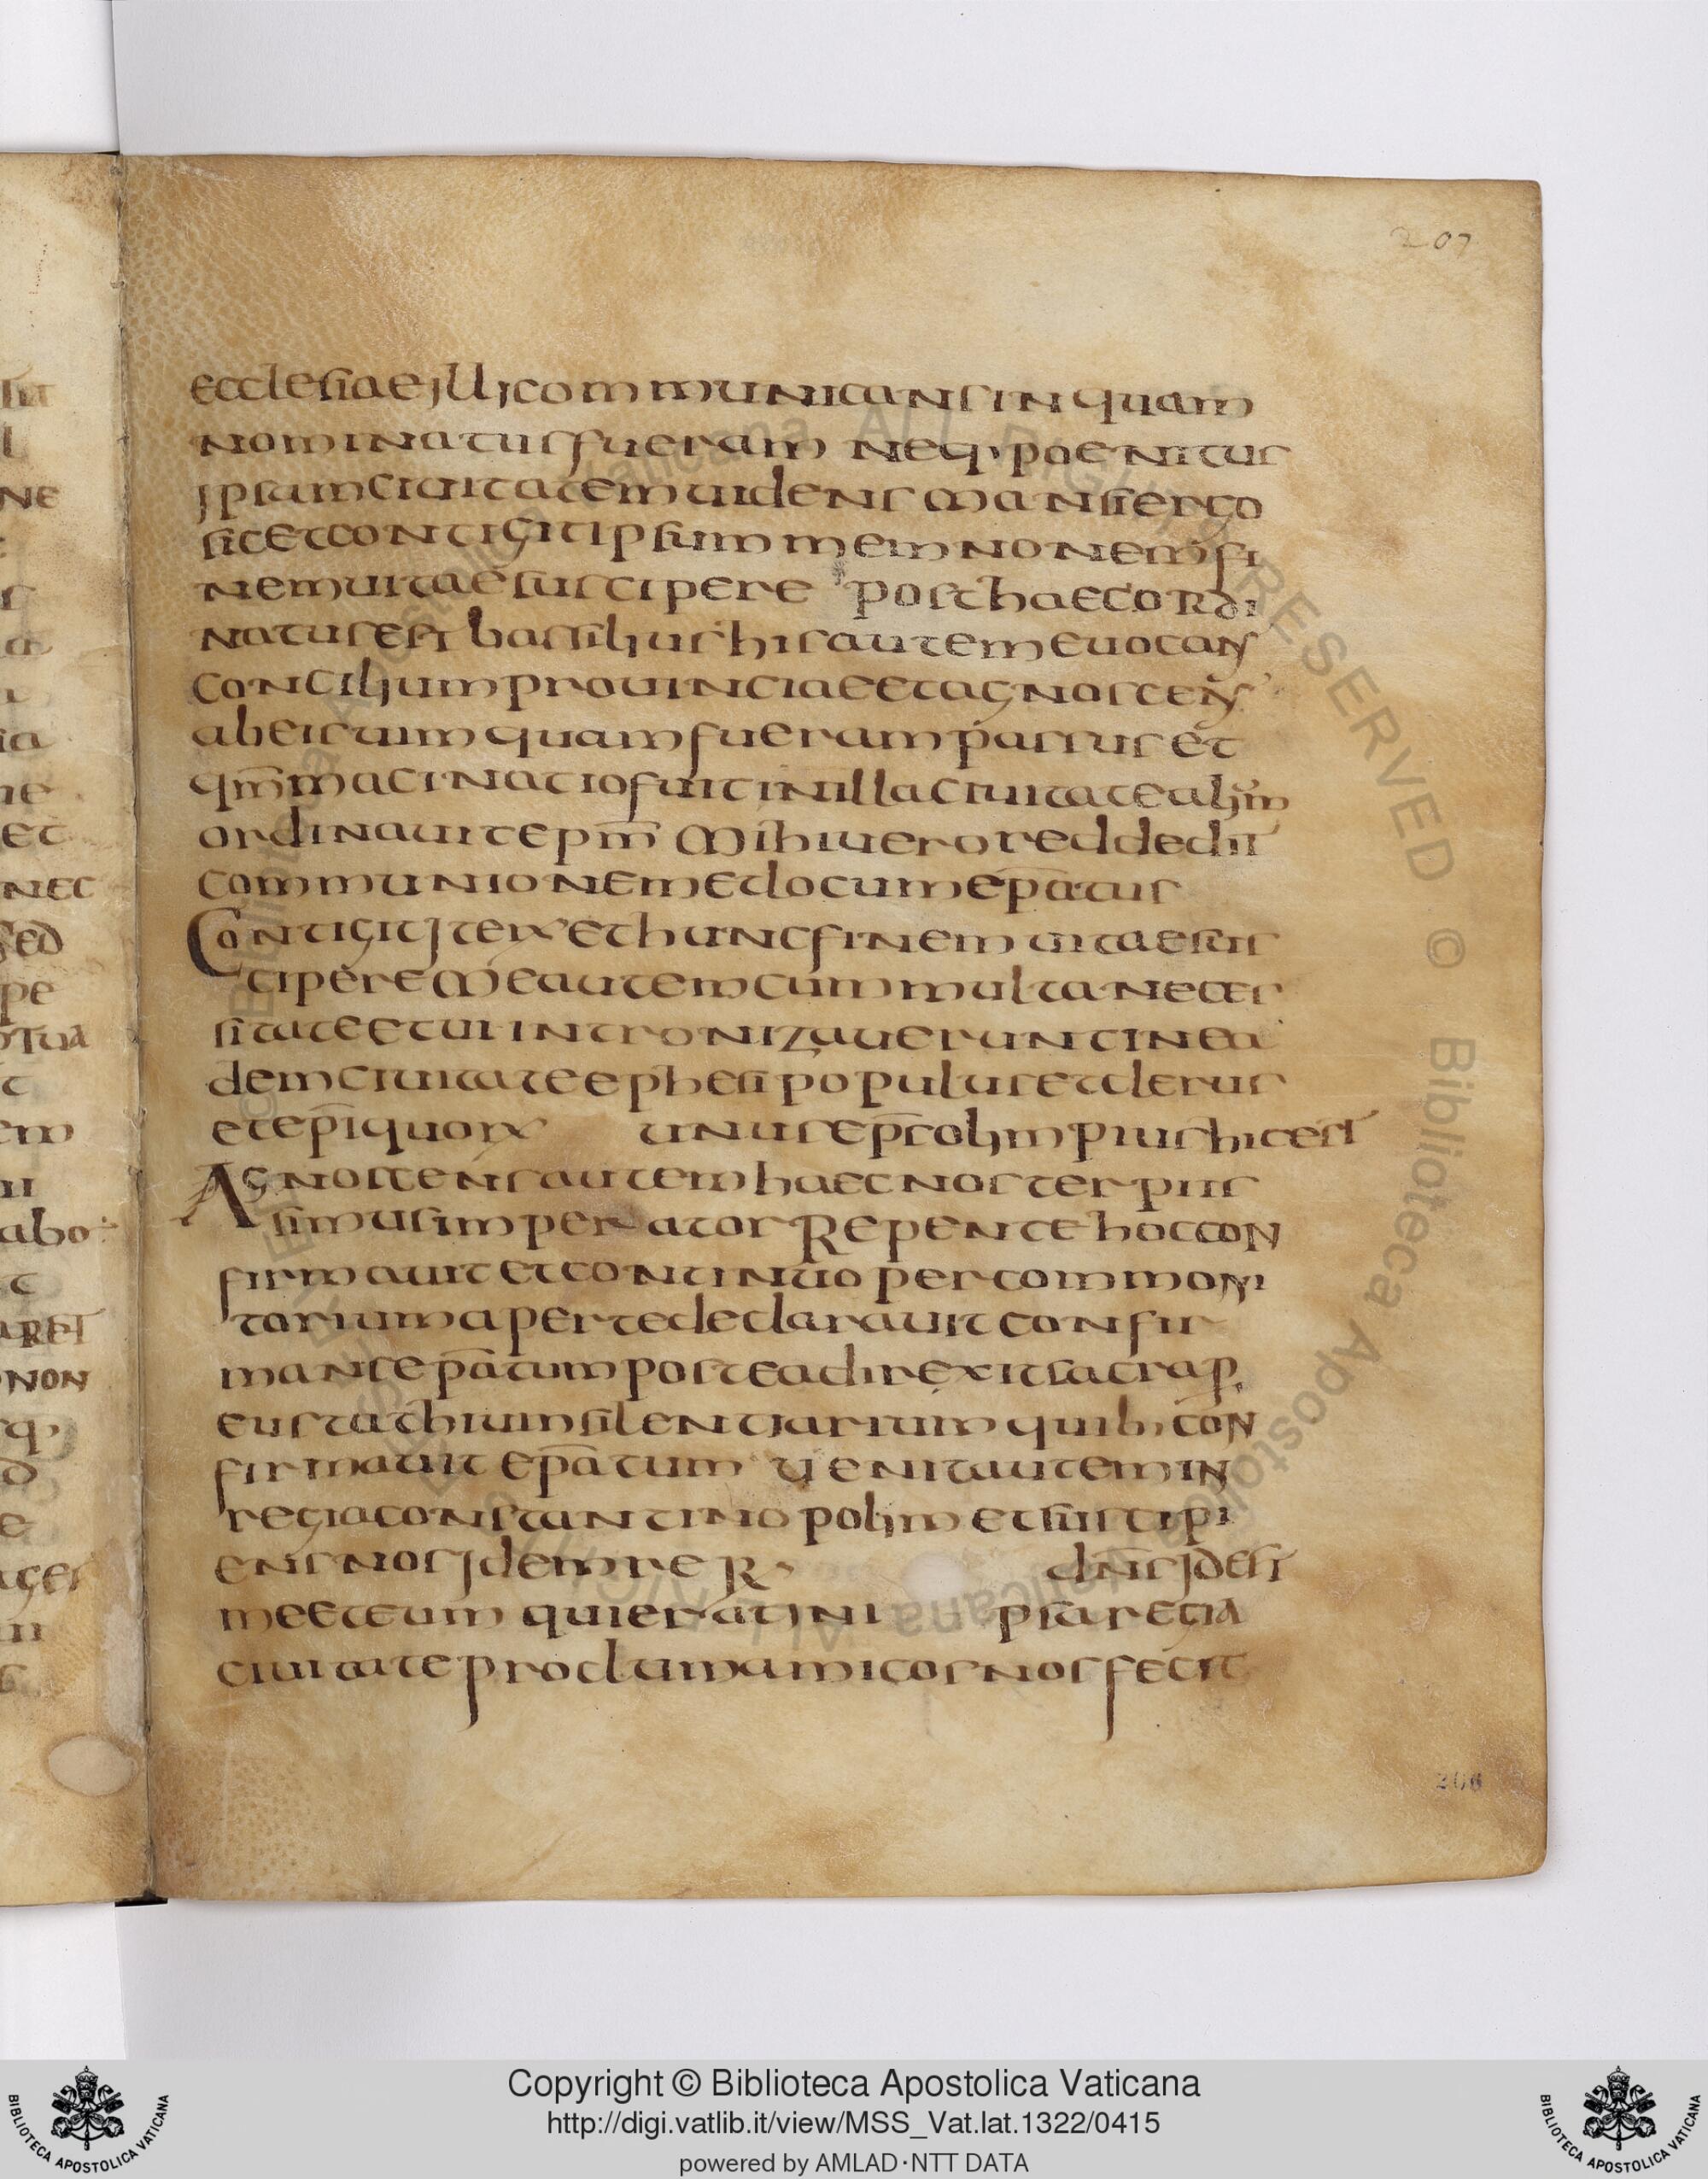 207
ecclesiae illi communicans in quam
nominatus fueram neq· poenitus
ipsam civitatem videns mansi ergo
sic et contigit ipsum memnonem fi
nem vitae suscipere post haec ordi
natus est bassilius his autem evocans
concilium provinciae et agnoscens
ab eis vim quam fueram passus et
qm̄ macinatio fuit in illa civitate alium
ordinavit ep̄m Mihi vero reddedit
communionem et locum ep̄atus
Contigit iterx et hunc finem vitae sus
cipere Me autem cum multa neces
sitate et vi intronizaverunt in ea
dem civitate ephesi populus et clerus
et ep̄i quorx unus ep̄s olimpius hic est
Agnoscens autem haec noster piis
simus imperator Repente hoc con
firmavit et continuo per commoni
torium aperte declaravit confir
mans ep̄atum postea direxit sacra p̱
eustathium silentiarium quib· con
firmavit ep̄atum Venit autem in
regia constantinopolim et suscipi
ens nos idem re R· dn̄s idest
me et eum qui erat in i psa regia
civitate proclum amicos nos fecit
206
Copyright © Biblioteca Apostolica Vaticana
http://digi.vatlib.it/view/MSS_Vat.lat.1322/0415
powered by AMLAD·NTT DATA
BIBLIOTECA APOSTOLICA VATICANA
BIBLIOTECA APOSTOLICA VATICANA